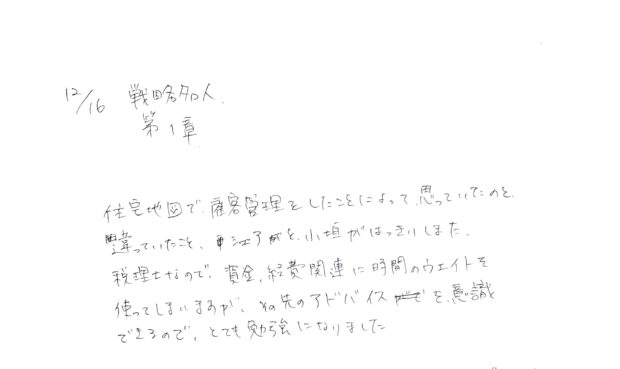 12/16 戦略名人
第1章
住宅地図で、顧客管理をしたことによって、思っていたのと、
違っていたこと、江戸と、小垣がはっきりしました。
税理士なので、資金、経費関連に時間のウエイトを
使ってしまいますが、その先のアドバイスを意識
できるので、とても勉強になりました